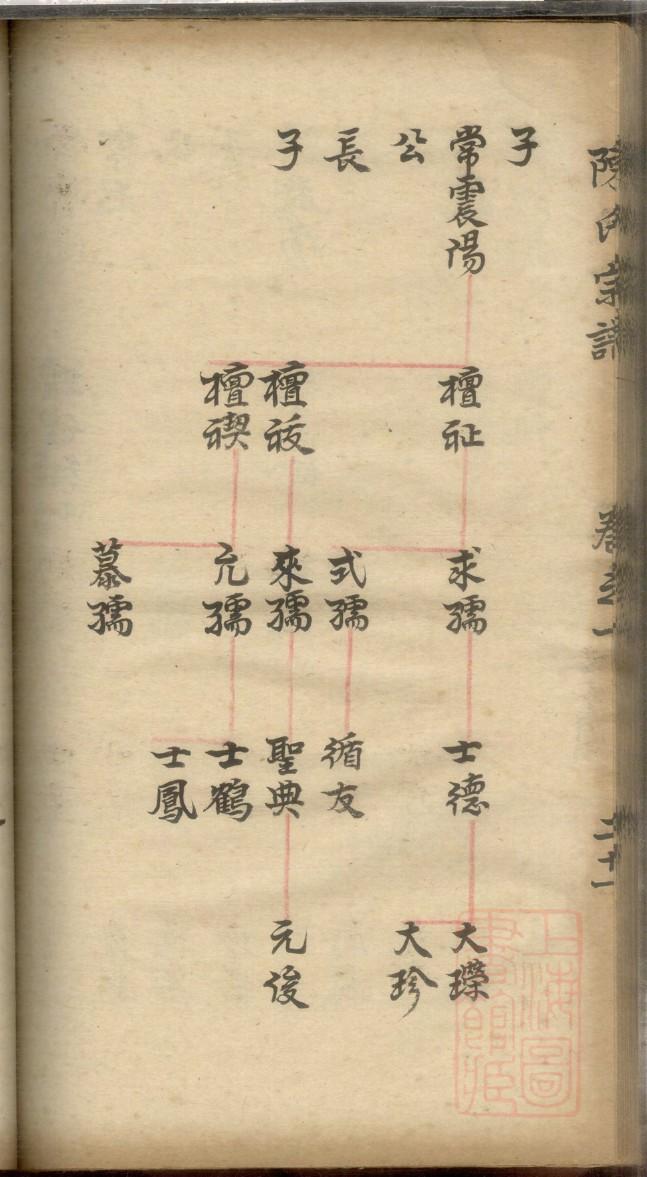 陳氏宗譜
卷之一
二十一
子
常震陽
公
長
子
檀祉
檀祓
檀禊
求孺
式孺
來孺
允孺
慕孺
士德
循友
聖典
士鶴
士鳳
大瓅
大珍
元俊
上海圖書館藏